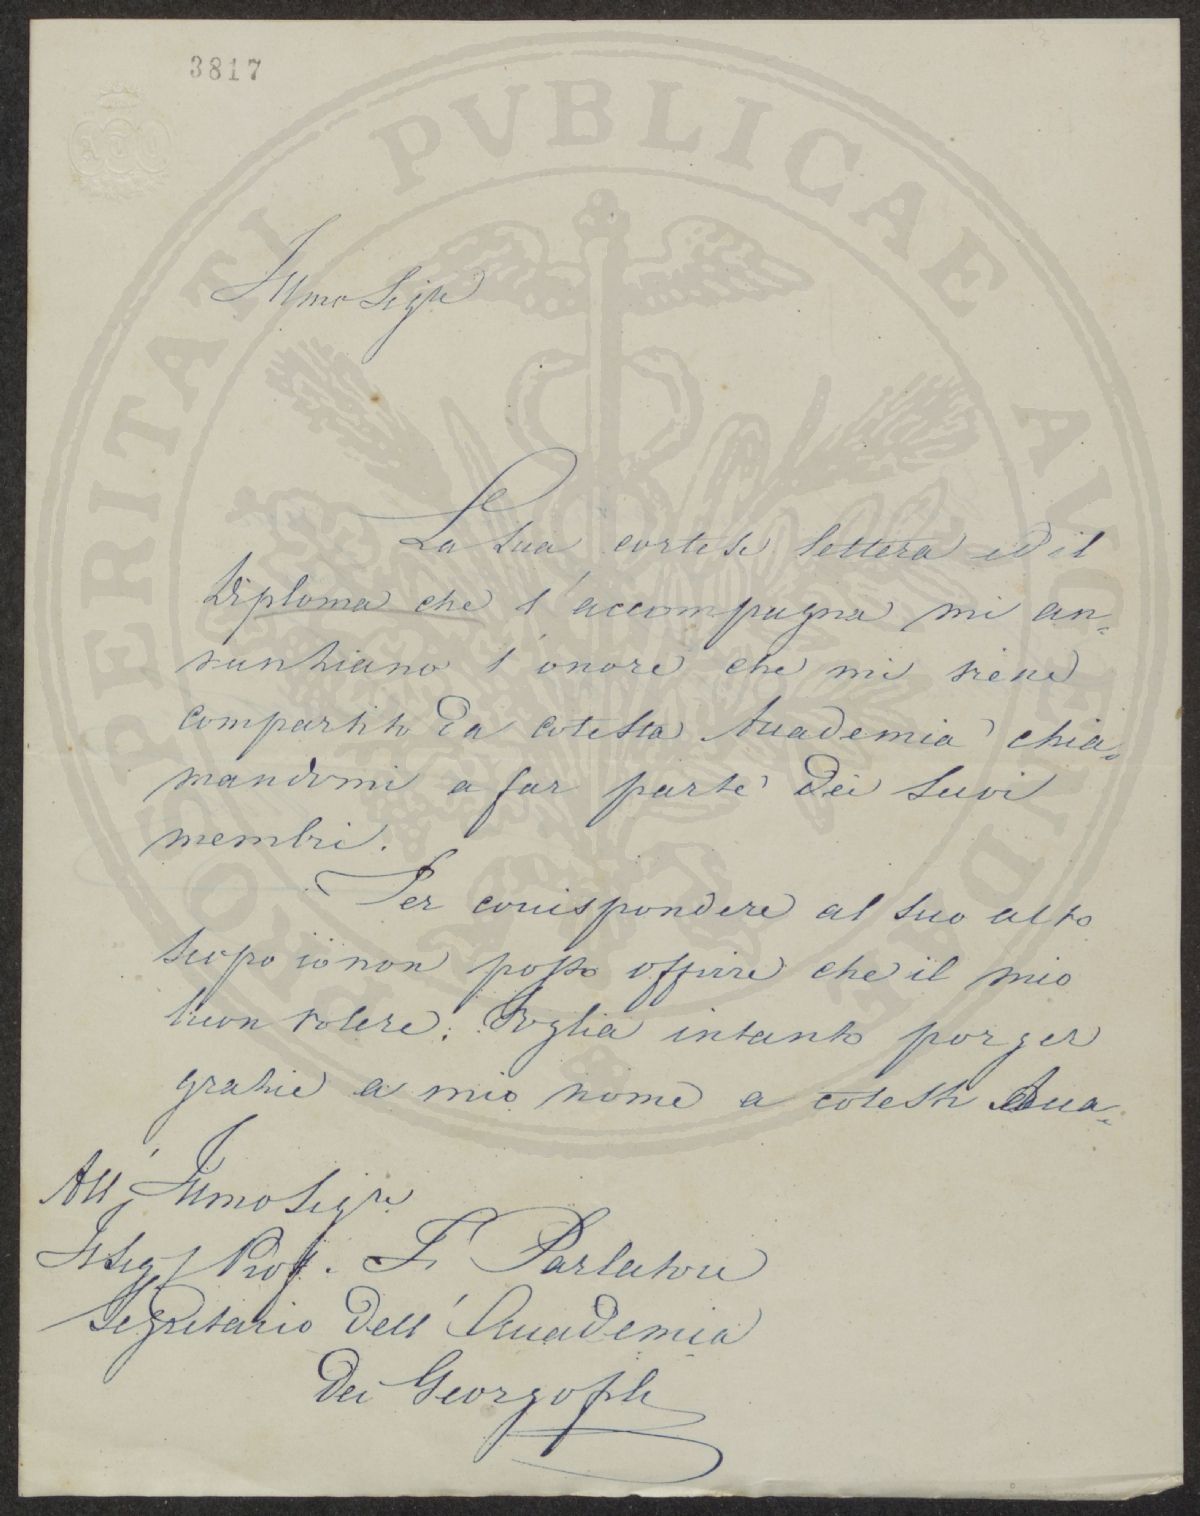 3817
PROSPERITATI PUBLICAE AUGENDAE
Illmo Sigre
La Sua cortese lettera ed il
Diploma che l'accompagna mi an-
nunziano l'onore che mi viene
compartito da cotesta Accademia chia-
mandomi a far parte dei Suoi
membri.
Per corrispondere al suo alto
scopo io non posso offrire che il mio
buon volere. Voglia intanto porger
grazie a mio nome a cotesti Acca-
All' Illmo Sigre
Il Sig Prof. F. Parlatore
Segretario dell' Accademia
dei Georgofili